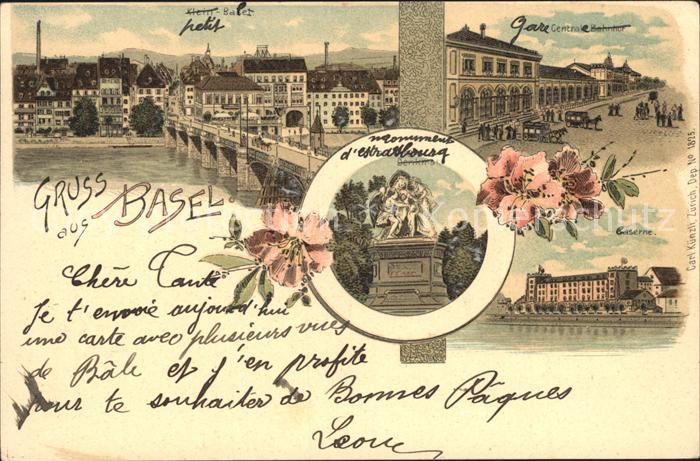 Klein-Basel
petit
gare Centrale Bahnhof
monument
d'estrasbourg
Denkmal
GRUSS
aus BASEL.
Caserne.
Carl Künzli, Zürich, Dep. No. 1825
Chère Tante
Je t'envoie aujourd'hui
une carte avec plusieurs vues
de Bâle et j'en profite
pour te souhaiter de Bonnes Pâques
Léon